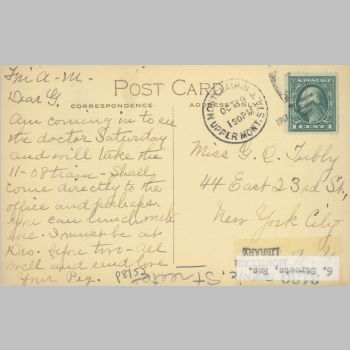 Fri A-M-
POST CARD
CORRESPONDENCE
Dear G,
Am coming in to see
the doctor Saturday
and will take the
11-08 train - Shall
come directly to the
office and perhaps
you can lunch with
me. I must be at
Drs. before two - All
well and send love
Your Peg.
MONTCLAIR N.J.
OCT 19
1 30 PM
UPPER MONT. STA.
U.S. POSTAGE
1 CENT 1
Miss G. O. Tubby
44 East 23rd St,
New York City
6. Streets, Res.
LIBRARY
P8/53